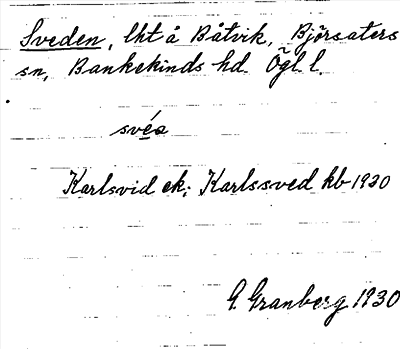 Sveden, lht å Båtvik, Björsaters
sn, Bankekinds hd. Ögl l.
svéa
Karlsvid ek; Karlssved kb 1930
G. Granberg 1930